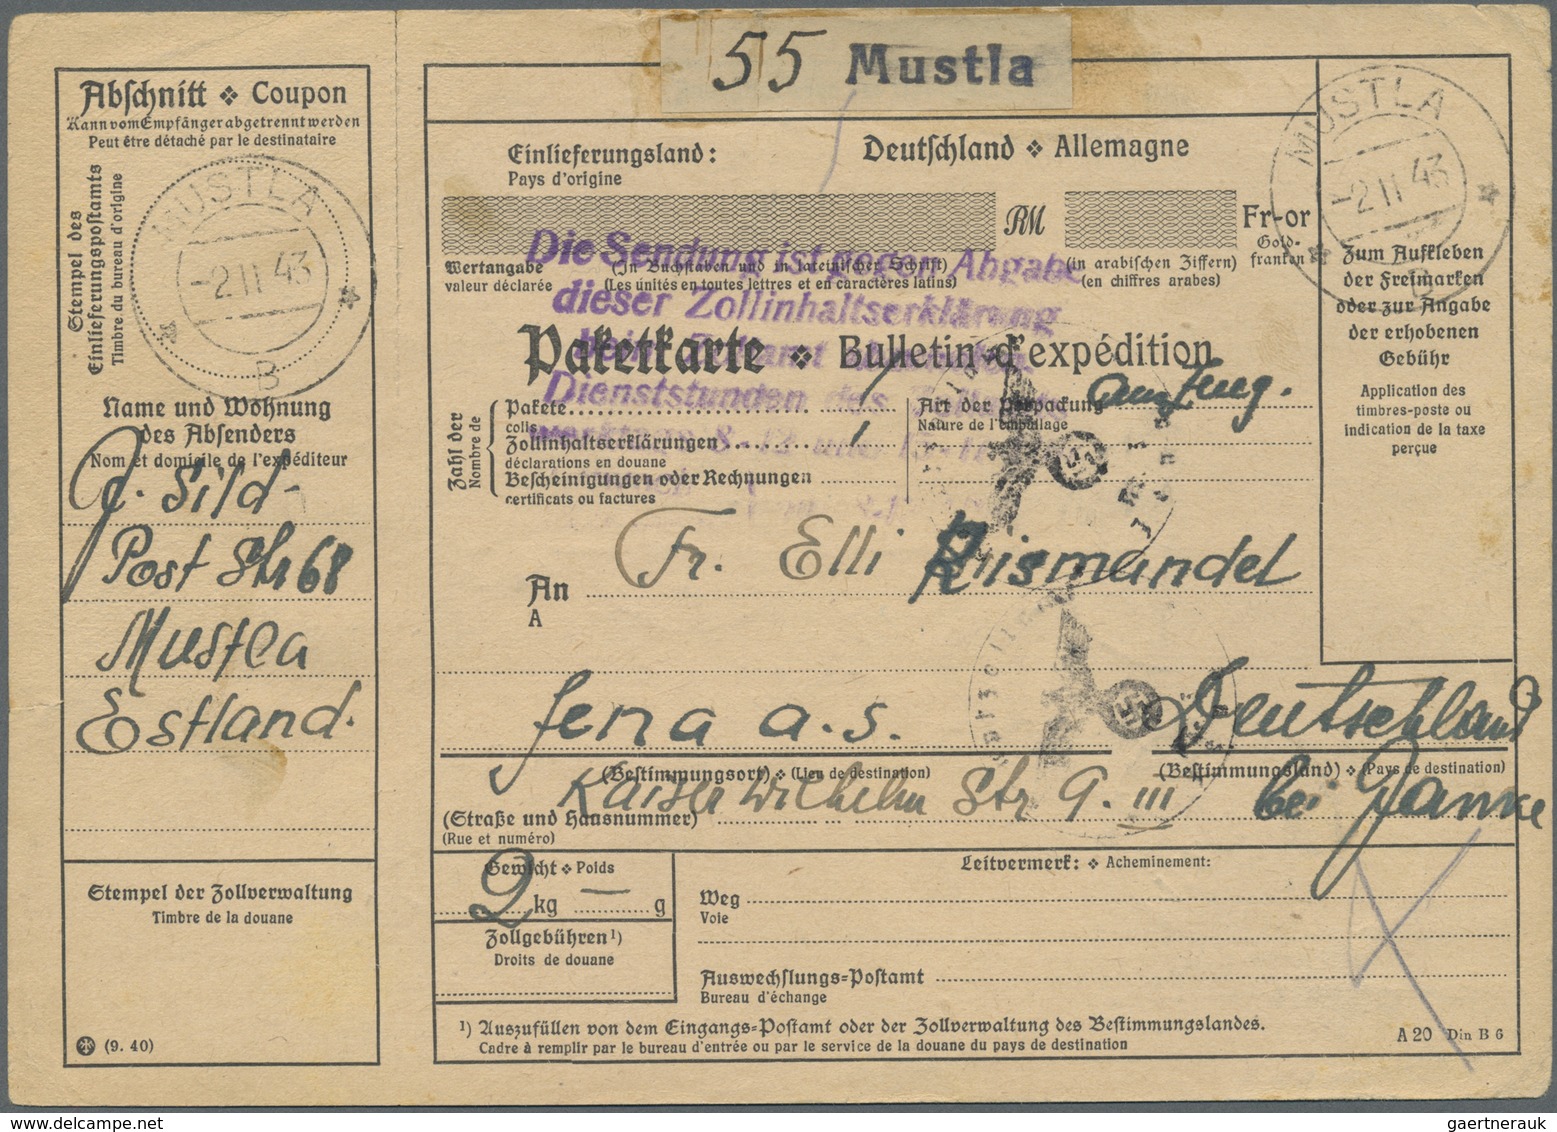 55 Mustla
Abschnitt ❖ Coupon
Kann vom Empfänger abgetrennt werden
Peut être détaché par le destinataire
Stempel des
Einlieferungspostamts
Timbre du bureau d'origine
MUSTLA
-2.11 43
B
Name und Wohnung
des Absenders
Nom et domicile de l'expéditeur
J. Sild-
Post Str 68
Mustla
Estland.
Stempel der Zollverwaltung
Timbre de la douane
(9. 40)
Einlieferungsland: Deutschland ❖ Allemagne
Pays d'origine
RM Fr-or
Gold-
franken
Wertangabe (In Buchstaben und in lateinischer Schrift) (in arabischen Ziffern)
valeur déclarée (Les unités en toutes lettres et en caractères latins) (en chiffres arabes)
Die Sendung ist gegen Abgabe
dieser Zollinhaltserklärung
beim Zollamt
Dienststunden des
werktags 8-12
Paketkarte ❖ Bulletin d'expédition
Zahl der
Nombre de
Pakete 1
colis
Zollinhaltserklärungen 1
déclarations en douane
Bescheinigungen oder Rechnungen
certificats ou factures
Art der Verpackung
Nature de l'emballage
MUSTLA
-2.11 43
Zum Aufkleben
der Freimarken
oder zur Angabe
der erhobenen
Gebühr
Application des
timbres-poste ou
indication de la taxe
perçue
An Fr. Elli Riismandel
A
Jena a.s. Deutschland
(Bestimmungsort) ❖ (Lieu de destination) (Bestimmungsland) ❖ (Pays de destination)
Kaiser Wilhelm Str 9. III bei Janke
(Straße und Hausnummer)
(Rue et numéro)
Gewicht ❖ Poids
2 kg — g
Zollgebühren ¹)
Droits de douane
Leitvermerk: ❖ Acheminement:
Weg
Voie
Auswechslungs-Postamt
Bureau d'échange
¹) Auszufüllen von dem Eingangs-Postamt oder der Zollverwaltung des Bestimmungslandes.
Cadre à remplir par le bureau d'entrée ou par le service de la douane du pays de destination
A 20 Din B 6
gaertnerauk @ delcampe.net